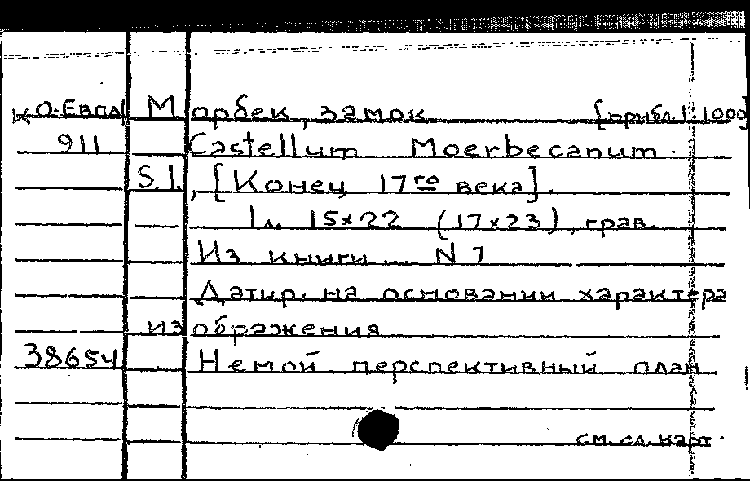 К О-Евпа Морбек, замок [прибл. 1:1000]
911 Castellum Moerbecanum.
S.l., [Конец 17го века].
1 л. 15×22 (17×23), грав.
Из книги N 7
Датир. на основании характера
изображения
38654 Немой перспективный план
см. сл. карт.